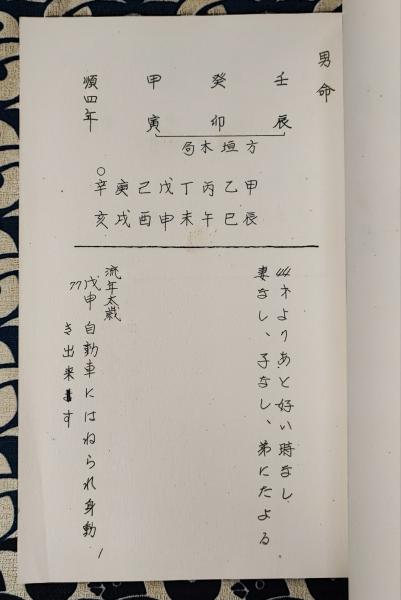 男命
壬 癸 甲 順四年
辰 卯 寅
方垣木局
甲 乙 丙 丁 戊 己 庚 辛
辰 巳 午 未 申 酉 戌 亥
44才よりあと好い時なし
妻なし、子なし、弟にたよる。
流年太歳
77戊申 自動車にはねられ身動
き出来ます